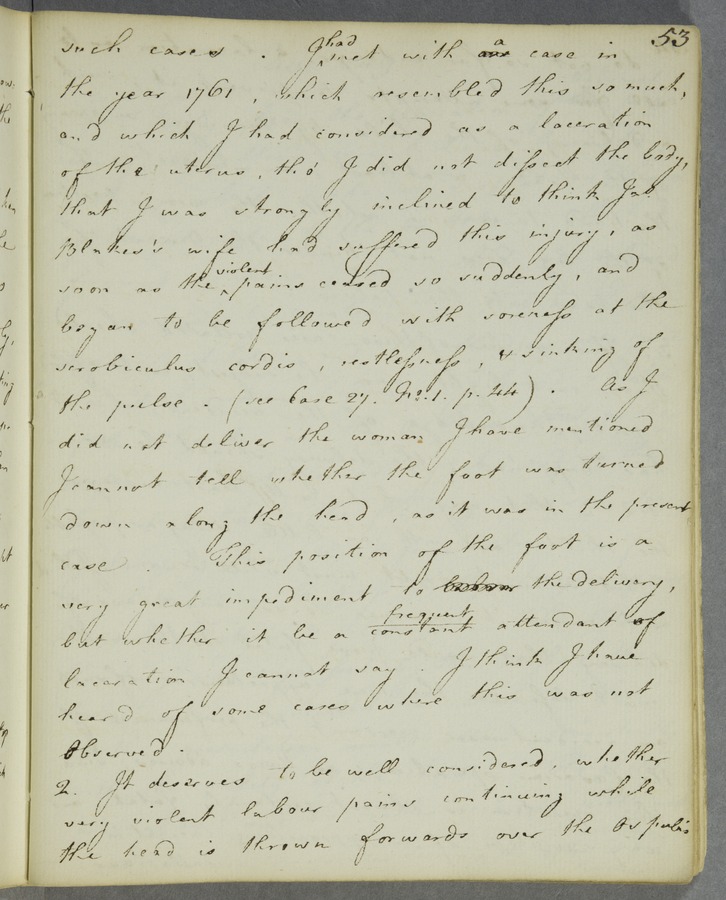 53
such cases. I had met with a case in
the year 1761, which resembled this so much,
and which I had considered as a laceration
of the uterus, tho' I did not dissect the body,
that I was strongly inclined to think Jas
Blakes's wife had suffered this injury, as
soon as the violent pains ceased so suddenly, and
began to be followed with soreness at the
scrobiculus cordis, restlessness, & sinking of
the pulse. (see Case 27. No. 1. p. 44). As I
did not deliver the woman I have mentioned
I cannot tell whether the foot was turned
down along the head, as it was in the present
case. This position of the foot is a
very great impediment to the delivery,
but whether it be a constant frequent attendant of
laceration I cannot say. I think I have
heard of some cases where this was not
observed.
2. It deserves to be well considered, whether
very violent labour pains continuing while
the head is thrown forwards over the os pubis